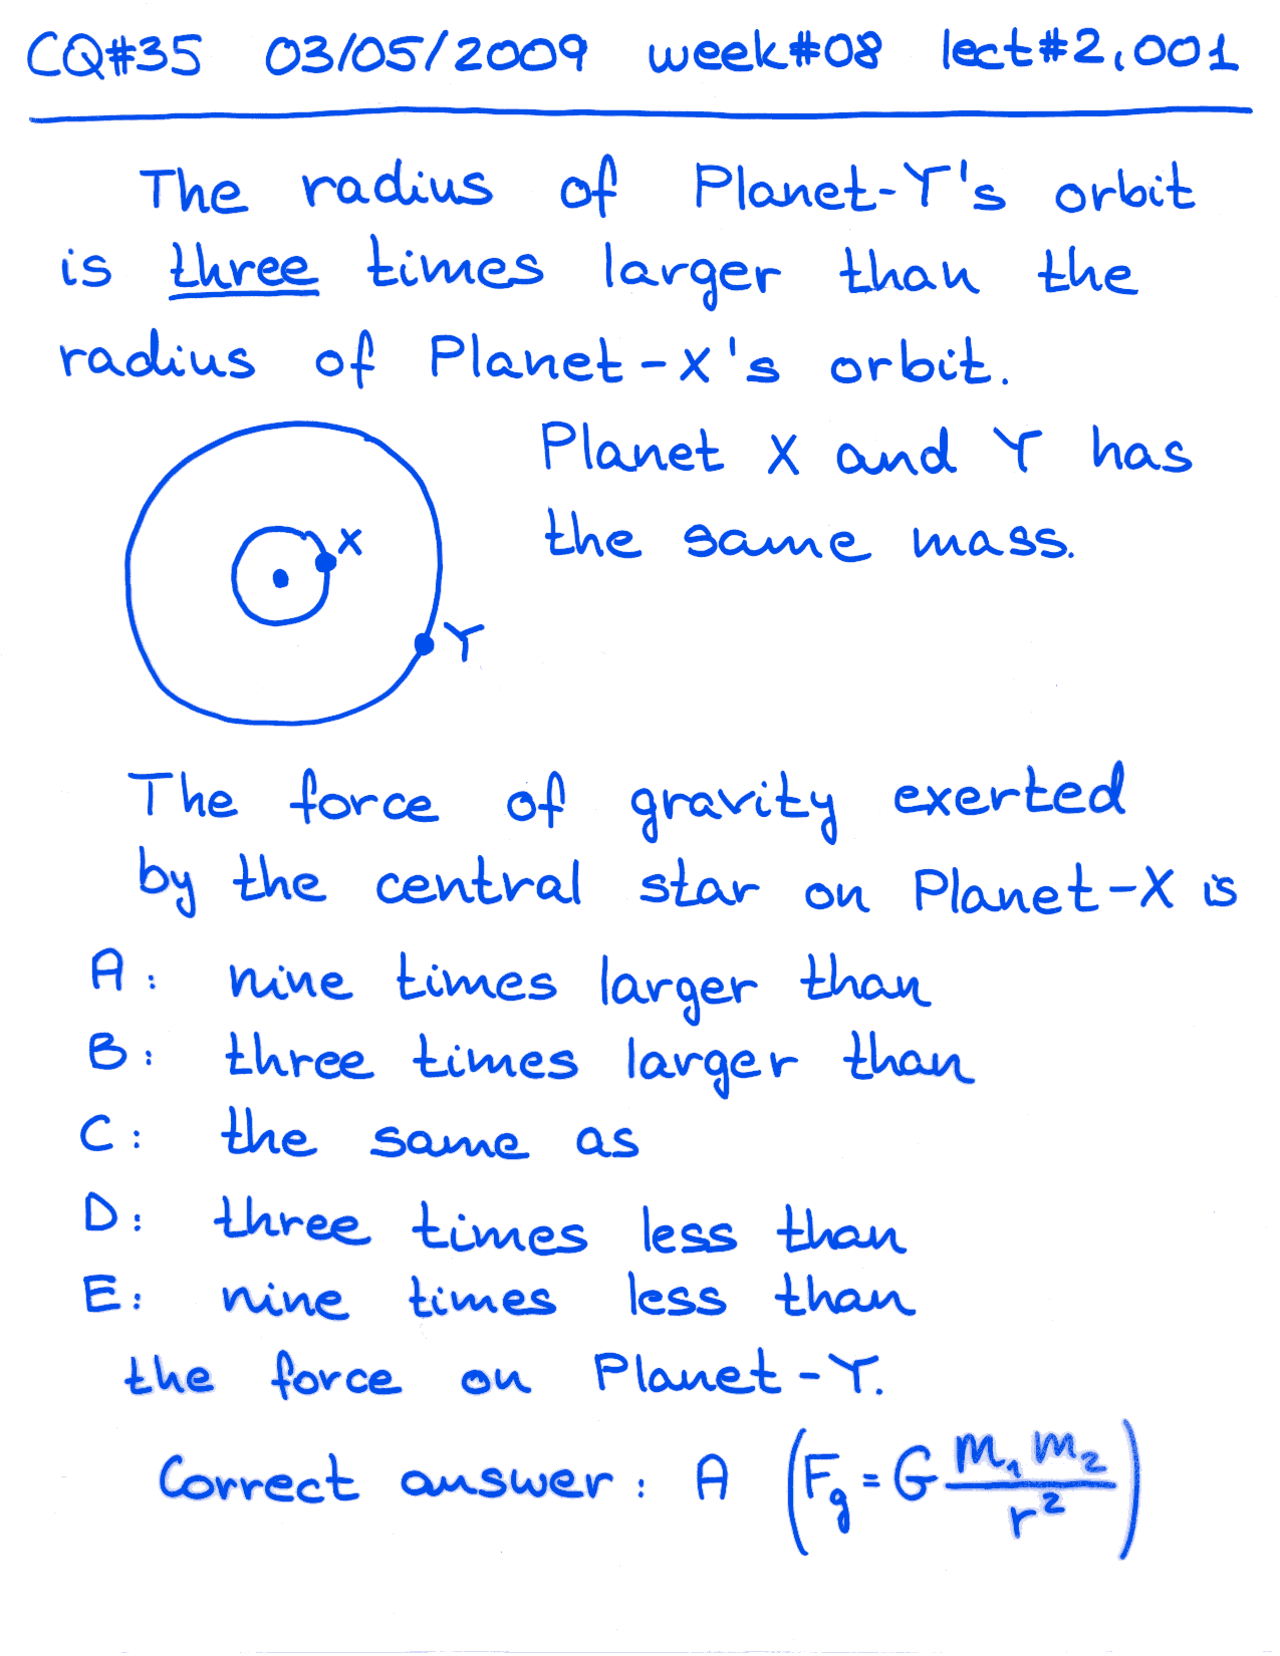 CQ#35 03/05/2009 week#08 lect#2,001
The radius of Planet-Y's orbit
is three times larger than the
radius of Planet-X's orbit.
Planet X and Y has
the same mass.
X
Y
The force of gravity exerted
by the central star on Planet-X is
A: nine times larger than
B: three times larger than
C: the same as
D: three times less than
E: nine times less than
the force on Planet-Y.
Correct answer: A (Fg = G m1 m2 / r²)